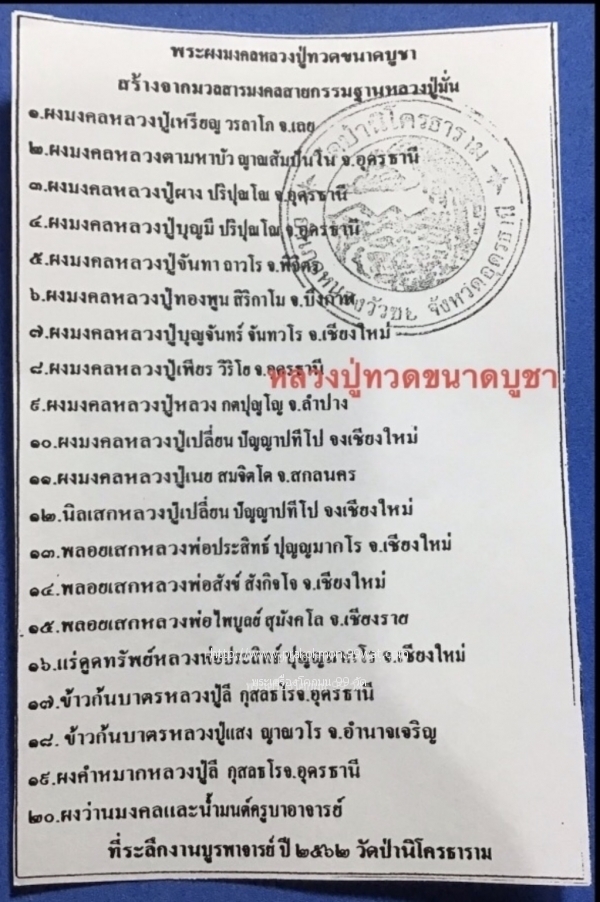 พระผงมงคลหลวงปู่ทวดขนาดบูชา
สร้างจากมวลสารมงคลสายกรรมฐานหลวงปู่มั่น
๑.ผงมงคลหลวงปู่เหรียญ วรลาโภ จ.เลย
๒.ผงมงคลหลวงตามหาบัว ญาณสัมปันโน จ.อุดรธานี
๓.ผงมงคลหลวงปู่ผาง ปริปุณโณ จ.อุดรธานี
๔.ผงมงคลหลวงปู่บุญมี ปริปุณโณ จ.อุดรธานี
๕.ผงมงคลหลวงปู่จันทา ถาวโร จ.พิจิตร
๖.ผงมงคลหลวงปู่ทองพูน สิริกาโม จ.บึงกาฬ
๗.ผงมงคลหลวงปู่บุญจันทร์ จันทวโร จ.เชียงใหม่
๘.ผงมงคลหลวงปู่เพียร วิริโย จ.อุดรธานี
หลวงปู่ทวดขนาดบูชา
๙.ผงมงคลหลวงปู่หลวง กตปุญโญ จ.ลำปาง
๑๐.ผงมงคลหลวงปู่เปลี่ยน ปัญญาปทีโป จงเชียงใหม่
๑๑.ผงมงคลหลวงปู่เนย สมจิตโต จ.สกลนคร
๑๒.นิลเสกหลวงปู่เปลี่ยน ปัญญาปทีโป จงเชียงใหม่
๑๓.พลอยเสกหลวงพ่อประสิทธ์ ปุญญมากโร จ.เชียงใหม่
๑๔.พลอยเสกหลวงพ่อสังข์ สังกิจโจ จ.เชียงใหม่
๑๕.พลอยเสกหลวงพ่อไพบูลย์ สุมังคโล จ.เชียงราย
๑๖.แร่ดูดทรัพย์หลวงพ่อประสิทธ์ ปุญญมากโร จ.เชียงใหม่
๑๗.ข้าวก้นบาตรหลวงปู่ลี กุสลธโรจ.อุดรธานี
๑๘. ข้าวก้นบาตรหลวงปู่แสง ญาณวโร จ.อำนาจเจริญ
๑๙.ผงคำหมากหลวงปู่ลี กุสลธโรจ.อุดรธานี
๒๐.ผงว่านมงคลและน้ำมนต์ครูบาอาจารย์
ที่ระลึกงานบูรพาจารย์ ปี ๒๕๖๒ วัดป่านิโครธาราม
วัดป่านิโครธาราม
อำเภอหนองวัวซอ จังหวัดอุดรธานี